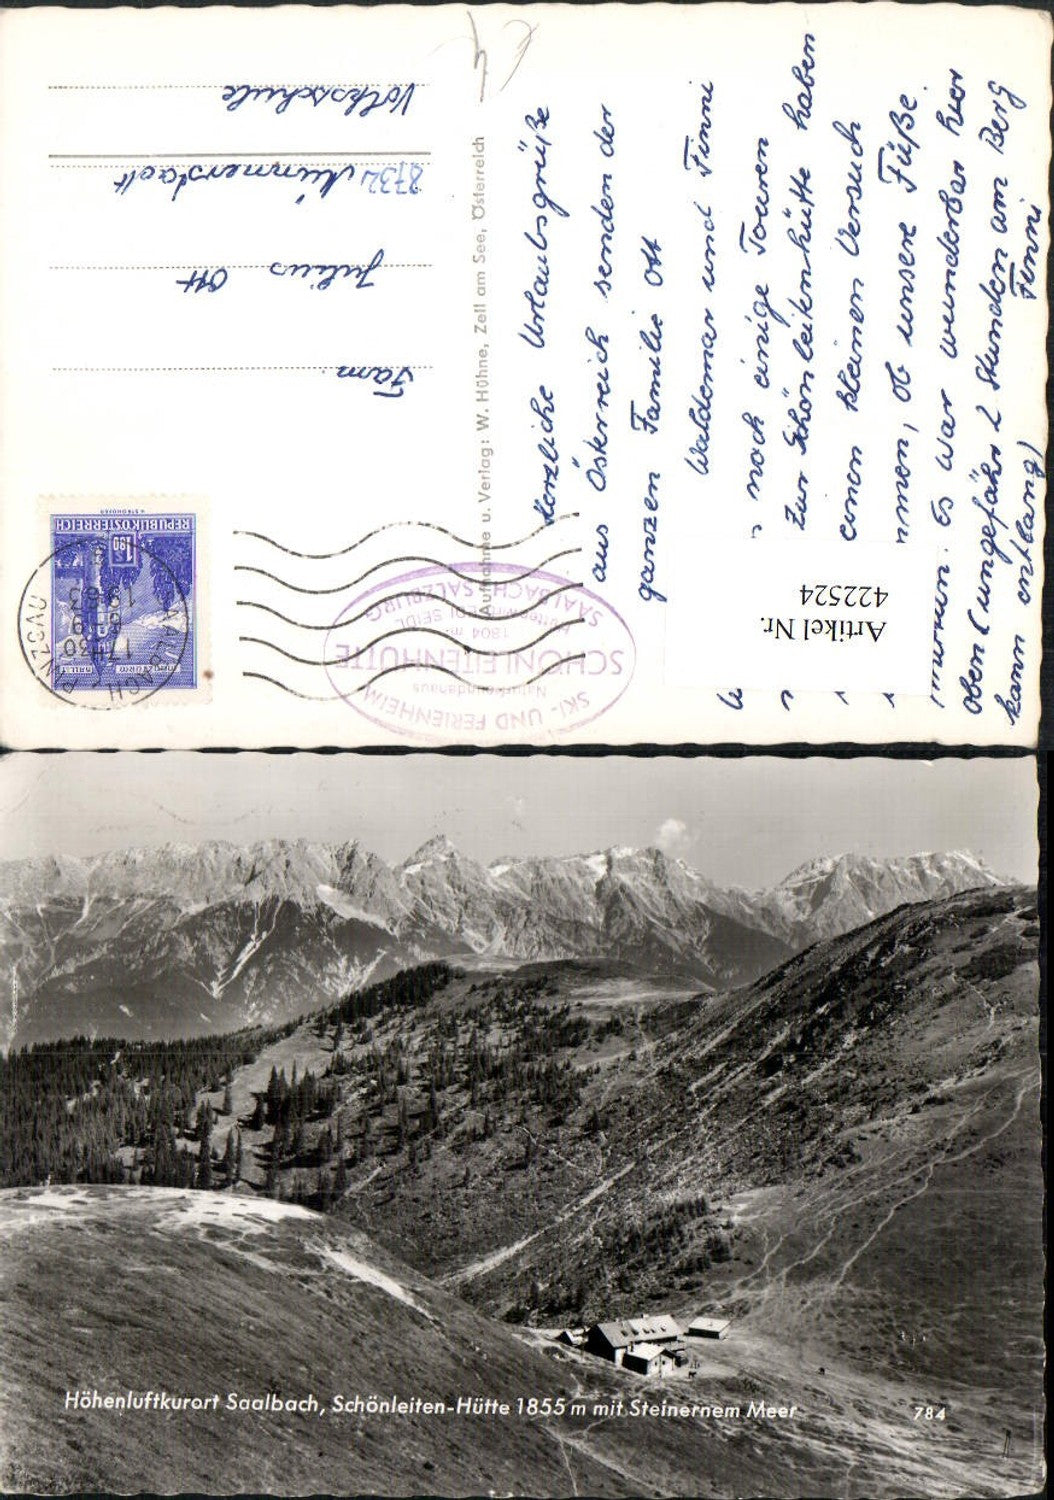 Herzliche Urlaubsgrüße
aus Österreich senden der
ganzen Familie Ott
Waldemar und Finni
noch einige Touren
Zur Schönleitenhütte haben
einen kleinen Versuch
ob unsere Füße
Es war wunderbar hier
oben (ungefähr 2 Stunden am Berg
kann entlang)
Finni
Artikel Nr.
422524
Aufnahme u. Verlag: W. Hühne, Zell am See, Österreich
Fam.
Julius Ott
8732 Münnerstadt
Volksschule
REPUBLIK ÖSTERREICH
S 1.80
SKI- UND FERIENHEIM
Naturfreundehaus
SCHÖNLEITENHÜTTE
1804 m
SEIDL
SAALBACH, SALZBURG
Höhenluftkurort Saalbach, Schönleiten-Hütte 1855 m mit Steinernem Meer
784